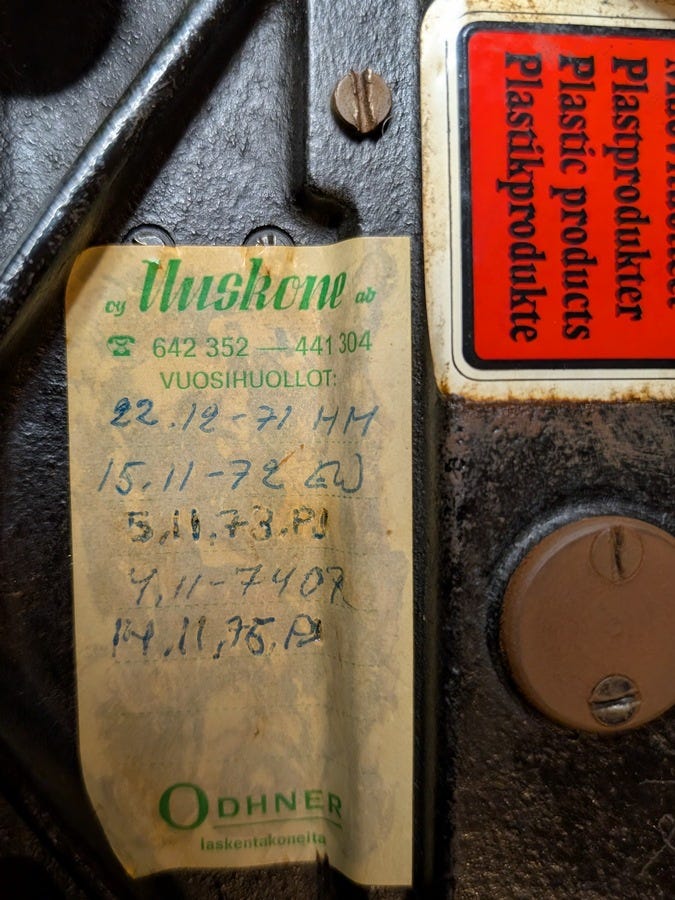 oy Uuskone ab
☎ 642 352 — 441 304
VUOSIHUOLLOT:
22.12-71 HM
15.11-72 EW
5.11.73.PJ
4.11-74 OR
14.11.75.PJ
ODHNER
laskentakoneita
Plastprodukter
Plastic products
Plastikprodukte